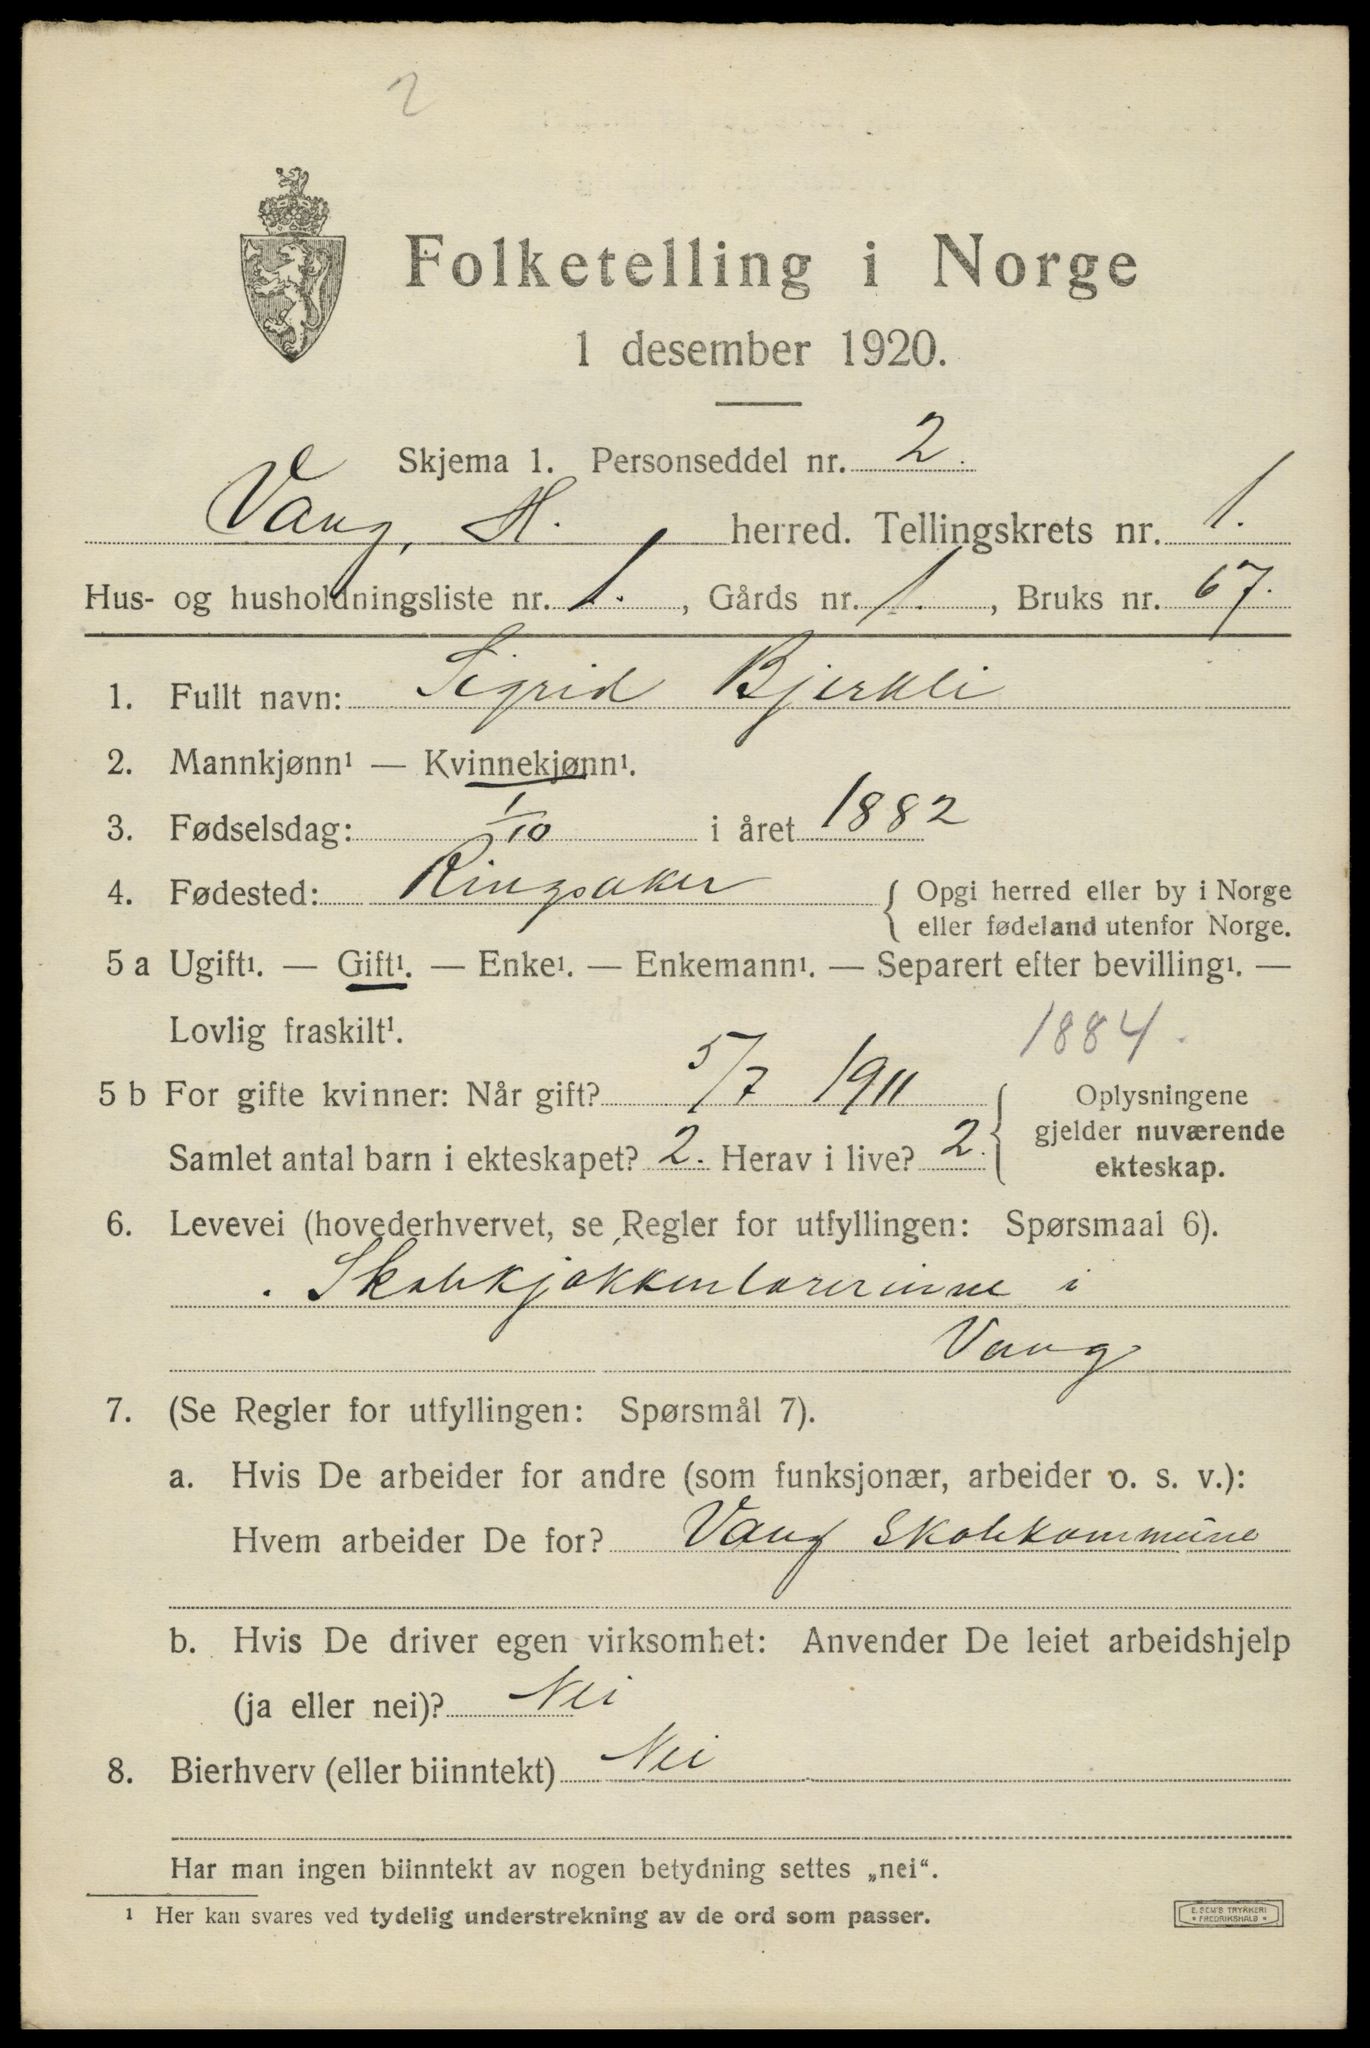 2
Folketelling i Norge
1 desember 1920.
Skjema 1. Personseddel nr. 2.
Vang, H. herred. Tellingskrets nr. 1.
Hus- og husholdningsliste nr. 1. , Gårds nr. 1. , Bruks nr. 67.
1. Fullt navn: Sigrid Bjerkli
2. Mannkjønn¹ — Kvinnekjønn¹.
3. Fødselsdag: 1/10 i året 1882
4. Fødested: Ringsaker { Opgi herred eller by i Norge
eller fødeland utenfor Norge.
5 a Ugift¹. — Gift¹. — Enke¹. — Enkemann¹. — Separert efter bevilling¹. —
Lovlig fraskilt¹.
1884.
5 b For gifte kvinner: Når gift? 5/7 1911 { Oplysningene
gjelder nuværende
Samlet antal barn i ekteskapet? 2. Herav i live? 2.
ekteskap.
6. Levevei (hovederhvervet, se Regler for utfyllingen: Spørsmaal 6).
Skolekjøkkenlærerinne i
Vang
7. (Se Regler for utfyllingen: Spørsmål 7).
a. Hvis De arbeider for andre (som funksjonær, arbeider o. s. v.):
Hvem arbeider De for? Vang Skolekommune
b. Hvis De driver egen virksomhet: Anvender De leiet arbeidshjelp
(ja eller nei)? Nei
8. Bierhverv (eller biinntekt) Nei
Har man ingen biinntekt av nogen betydning settes „nei“.
¹ Her kan svares ved tydelig understrekning av de ord som passer.
E. SEM'S TRYKKERI
* FREDRIKSHALD *